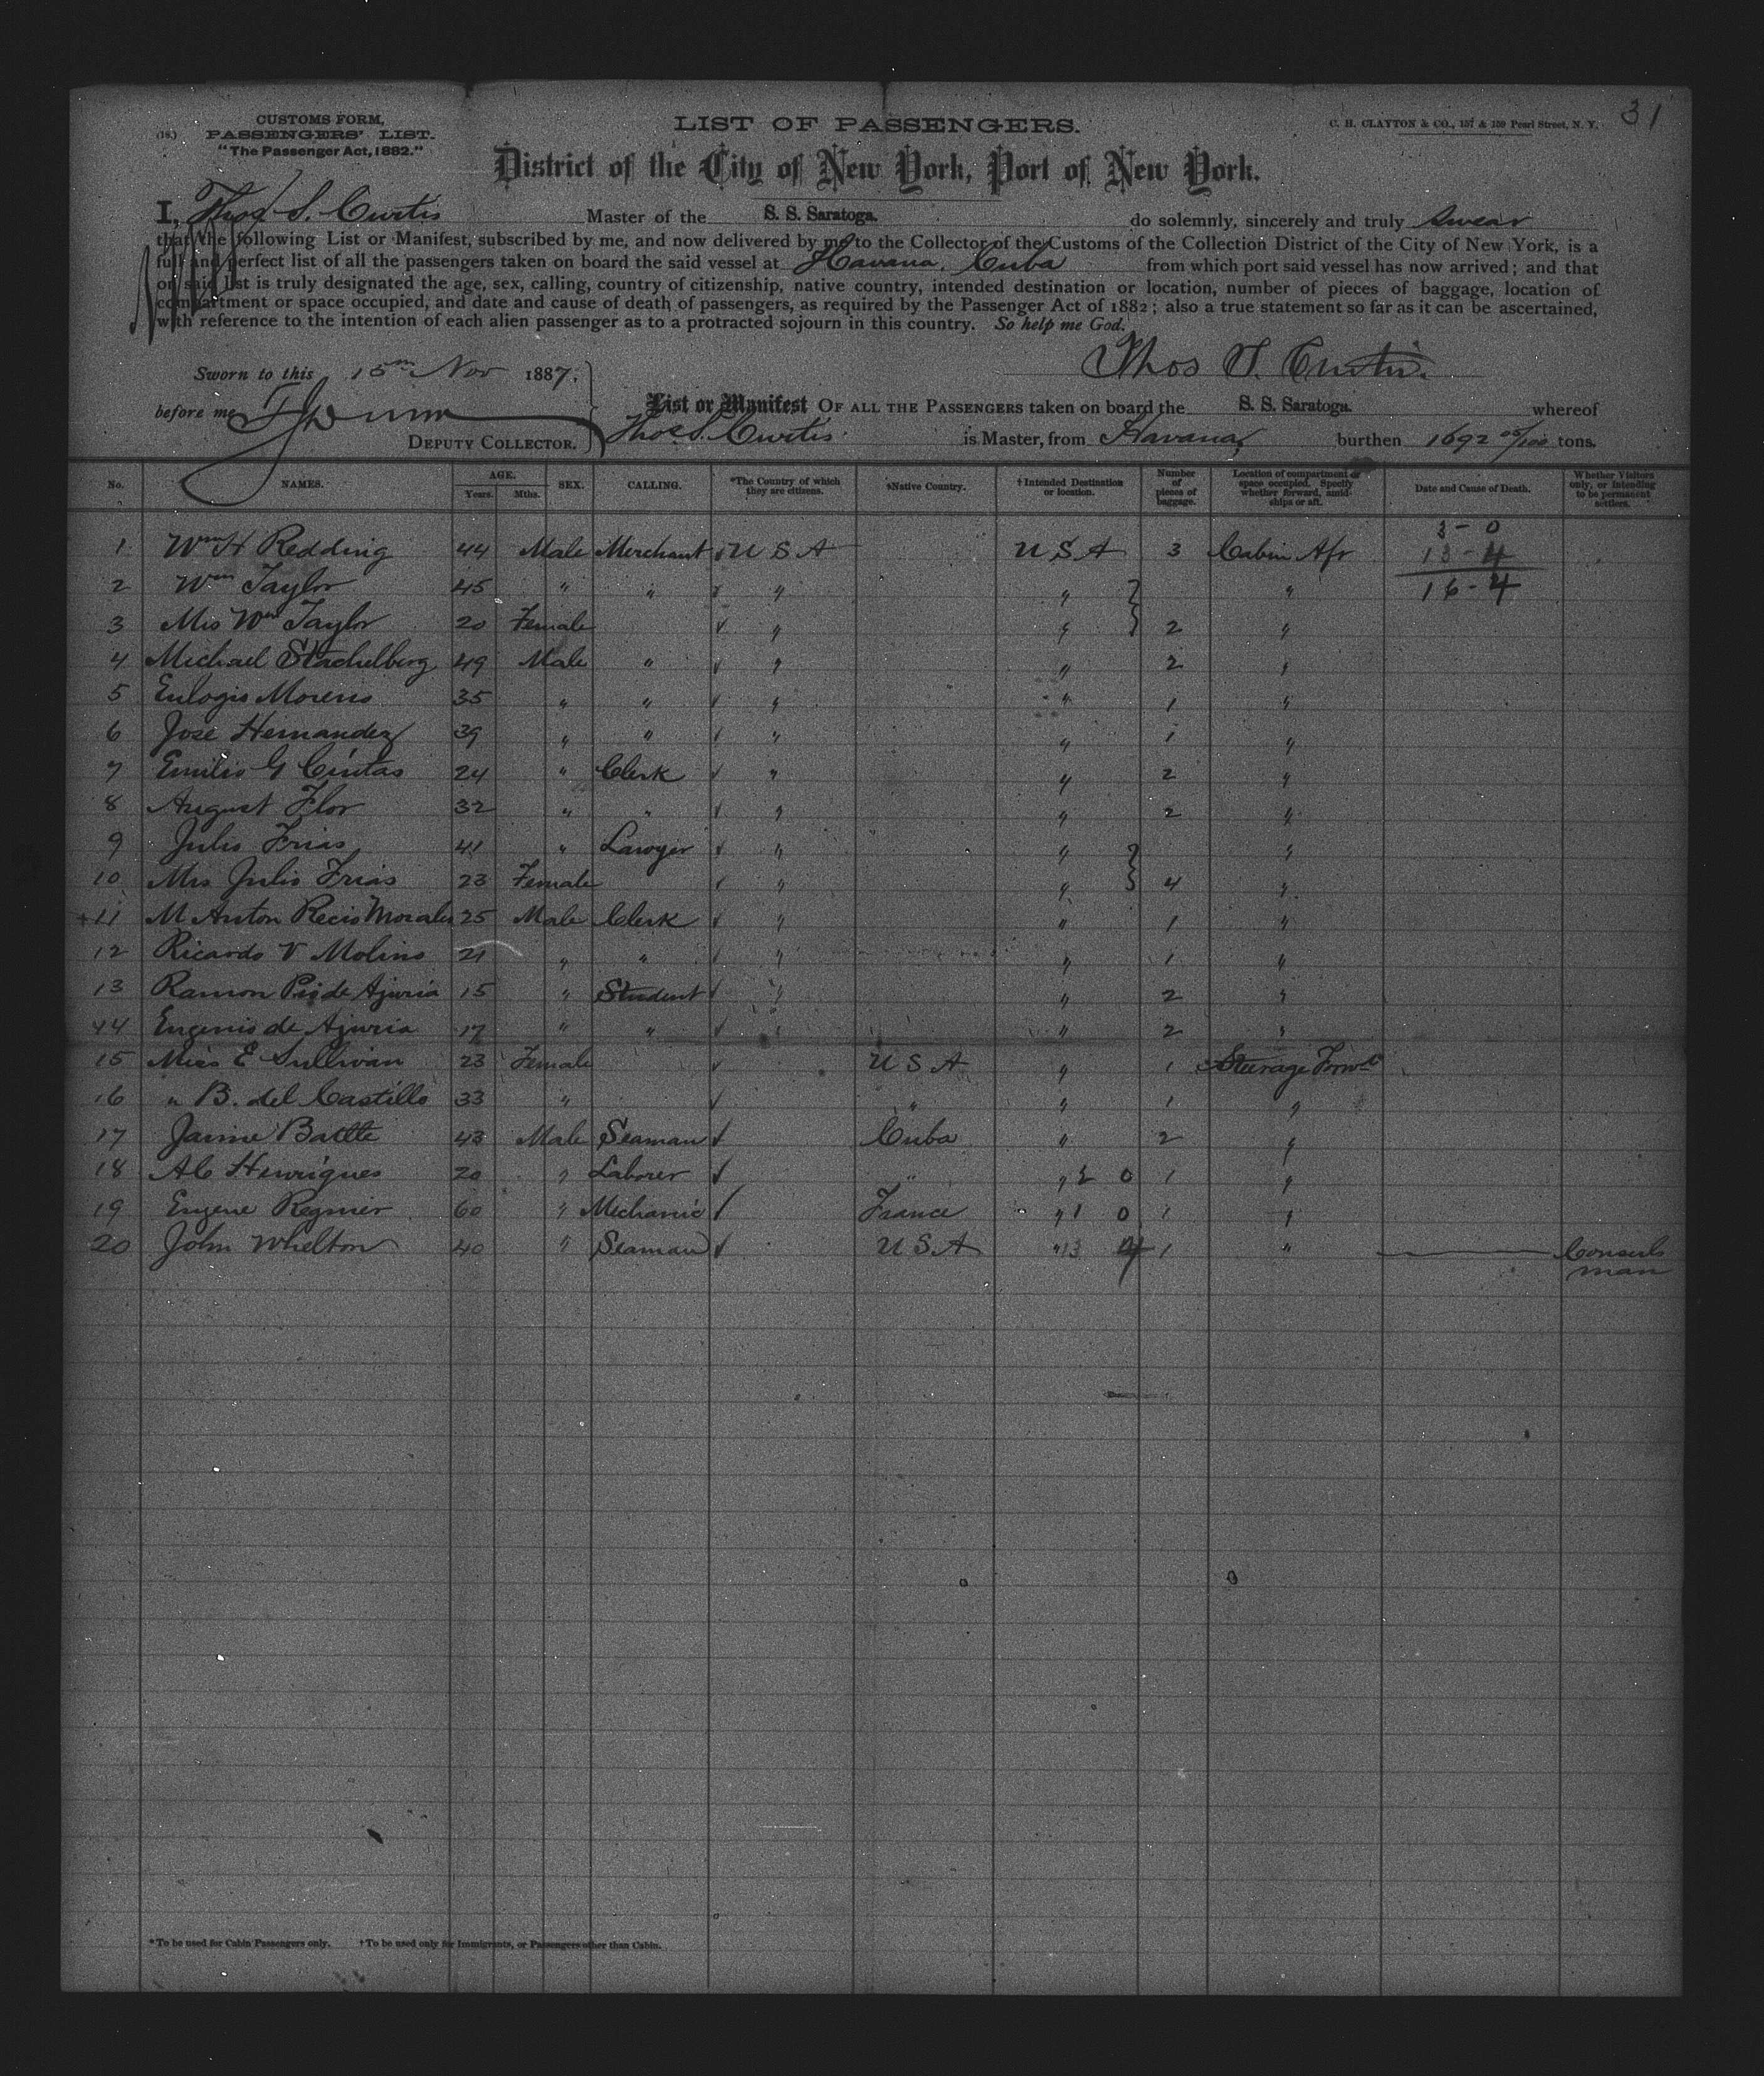 31
CUSTOMS FORM,
(18.) PASSENGERS' LIST.
"The Passenger Act, 1882."
LIST OF PASSENGERS.
C. H. CLAYTON & CO., 157 & 159 Pearl Street, N. Y.
District of the City of New York, Port of New York.
I, Thos S. Curtis Master of the S. S. Saratoga. do solemnly, sincerely and truly swear
that the following List or Manifest, subscribed by me, and now delivered by me to the Collector of the Customs of the Collection District of the City of New York, is a
full and perfect list of all the passengers taken on board the said vessel at Havana, Cuba from which port said vessel has now arrived; and that
on said list is truly designated the age, sex, calling, country of citizenship, native country, intended destination or location, number of pieces of baggage, location of
compartment or space occupied, and date and cause of death of passengers, as required by the Passenger Act of 1882; also a true statement so far as it can be ascertained,
with reference to the intention of each alien passenger as to a protracted sojourn in this country. So help me God.
Thos S. Curtis.
Sworn to this 15th Nov 1887,
before me
DEPUTY COLLECTOR.
List or Manifest OF ALL THE PASSENGERS taken on board the S. S. Saratoga. whereof
Thos S. Curtis is Master, from Havana, burthen 1692 05/100 tons.
No. NAMES. AGE. Years. Mths. SEX. CALLING. *The Country of which they are citizens. †Native Country. †Intended Destination or location. Number of pieces of baggage. Location of compartment or space occupied. Specify whether forward, amidships or aft. Date and Cause of Death. Whether Visitors only, or intending to be permanent settlers.
3-0
1 Wm H Redding 44 Male Merchant U S A U S A 3 Cabin Aft 13-4
2 Wm Taylor 45 " " " " " 16-4
3 Mrs Wm Taylor 20 Female " " 2 "
4 Michael Stachelberg 49 Male " " " 2 "
5 Eulogio Moreno 35 " " " " 1 "
6 José Hernandez 39 " " " " 1 "
7 Emilio G Cintas 24 " Clerk " " 2 "
8 August Flor 32 " " " " 2 "
9 Julio Frias 41 " Lawyer " " "
10 Mrs Julio Frias 23 Female " " 4 "
+11 M Anton Recio Morales 25 Male Clerk " " 1 "
12 Ricardo V Molino 21 " " " " 1 "
13 Ramon Pio de Ajuria 15 " Student " " 2 "
14 Eugenio de Ajuria 17 " " " " 2 "
15 Miss E Sullivan 23 Female U S A " 1 Steerage Forwd
16 " B. del Castillo 33 " " " 1 "
17 Jaime Batlle 43 Male Seaman Cuba " 2 "
18 Ab Henriques 20 " Laborer " " 2 0 1 "
19 Eugene Regnier 60 " Mechanic France " 1 0 1 "
20 John Whelton 40 " Seaman U S A " 13 4 1 " Consuls man
*To be used for Cabin Passengers only. †To be used only for Immigrants, or Passengers other than Cabin.